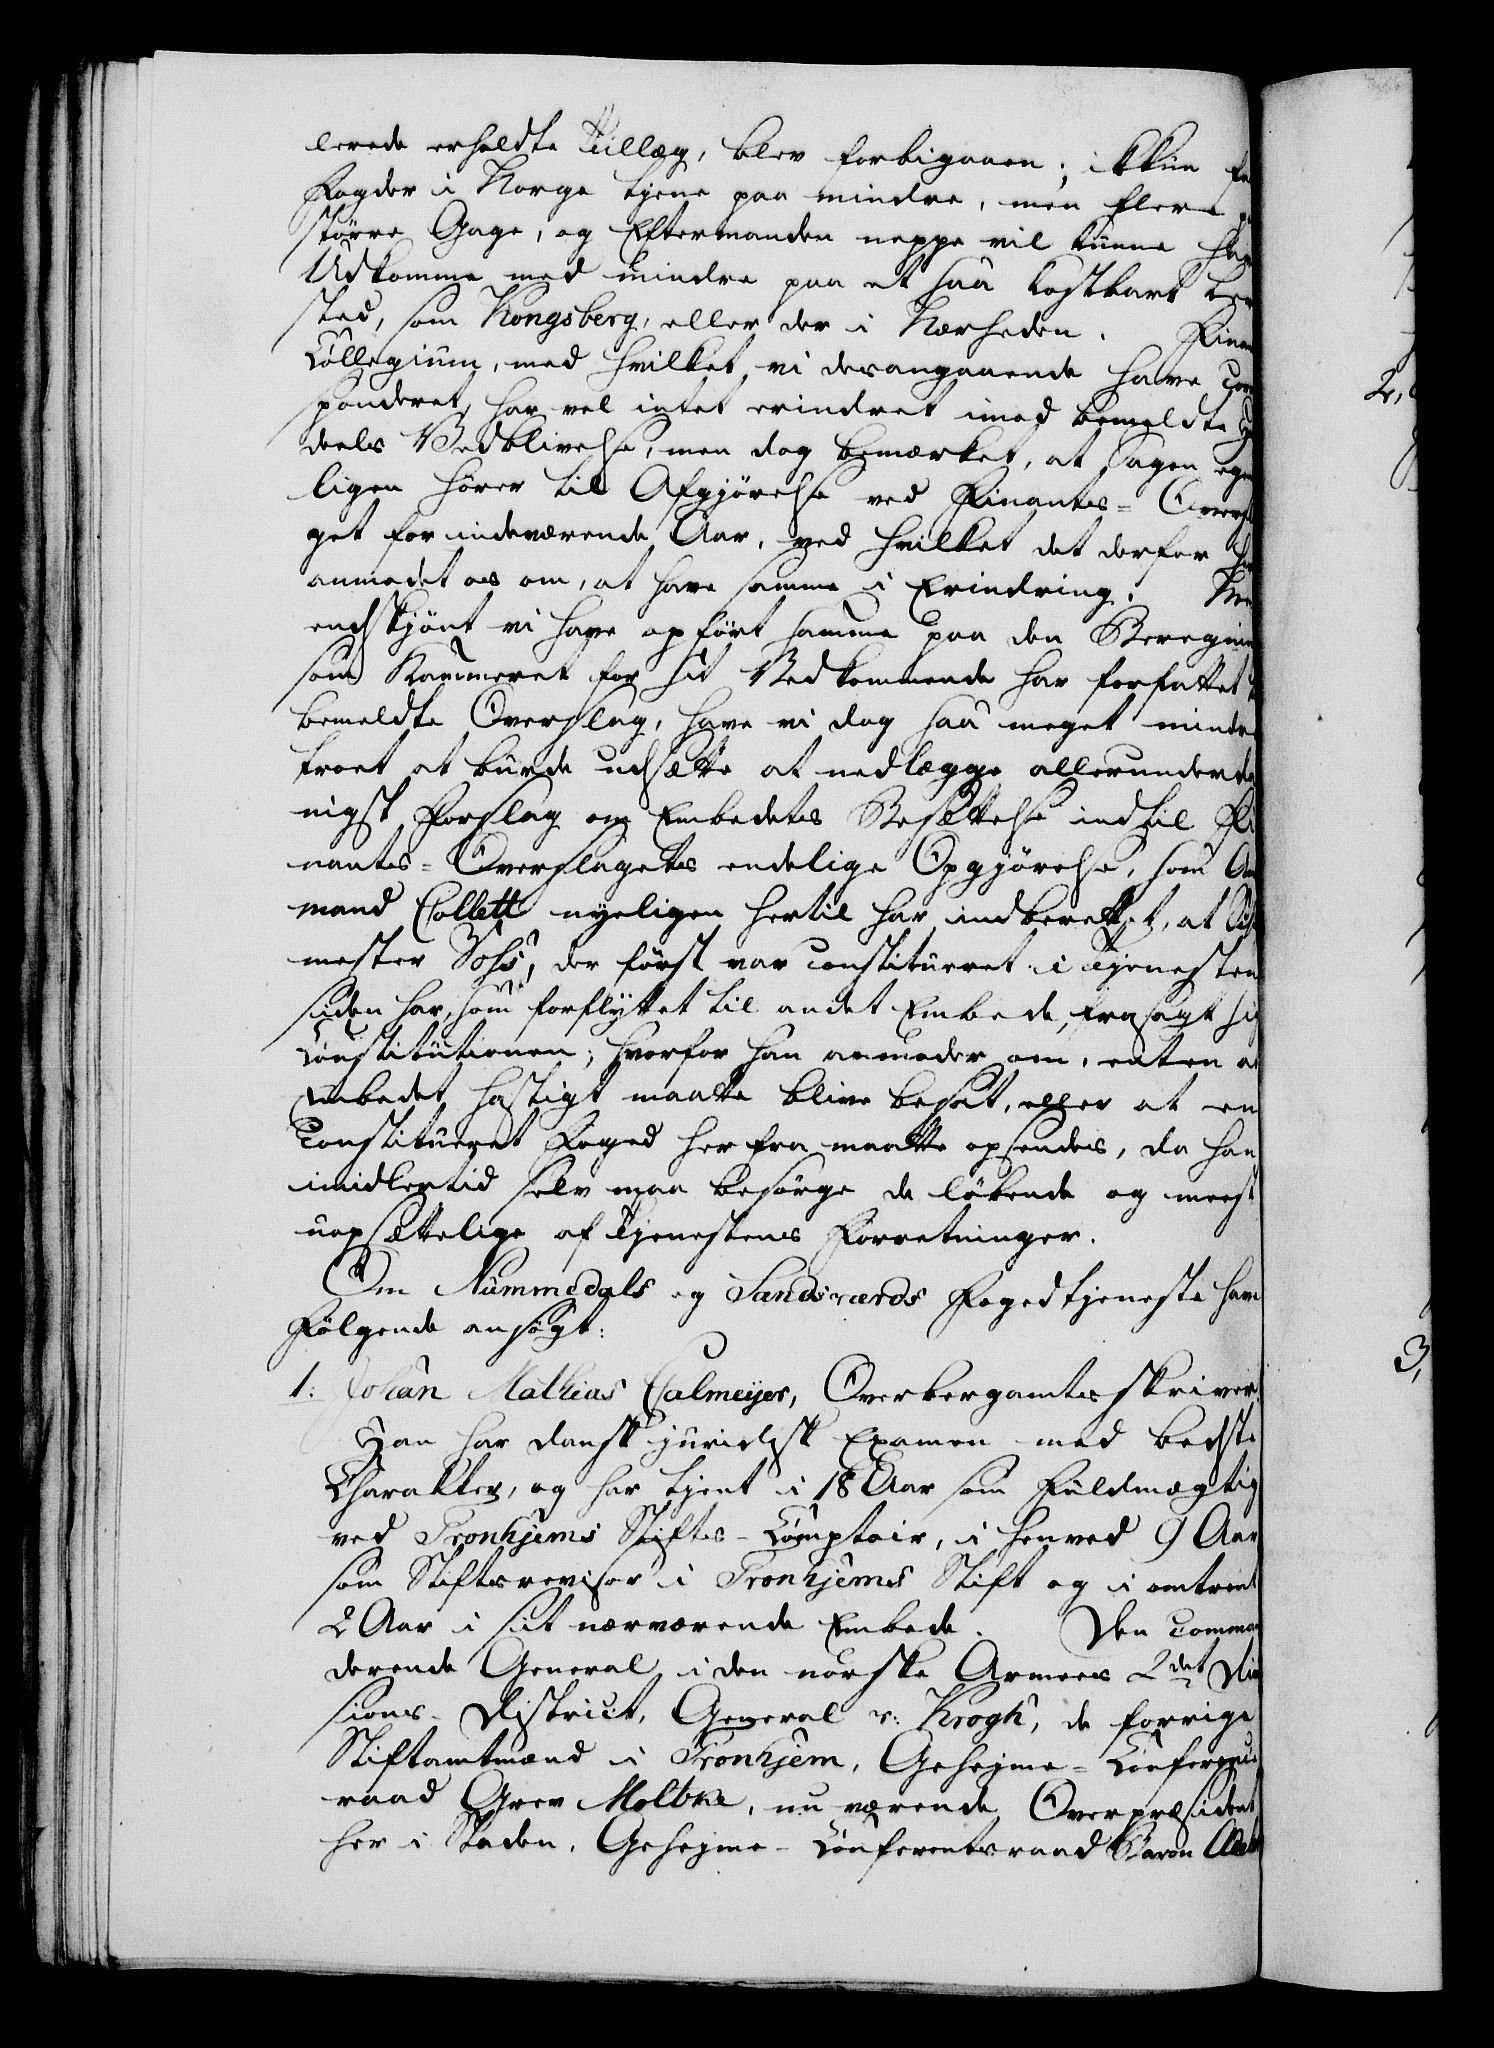 lerede erholdte Tillæg, blev forbigaaen; ikkun
Fogder i Norge tjene paa mindre, men flere
større Gage, og Eftermanden neppe vil kunne have
Udkomme med mindre paa et saa kostbart
sted, som Kongsberg, eller der i Nærheden. Finan
Collegium, med hvilket vi desangaaende have Corre
sponderet, har vel intet erindret imod bemeldte
deels Vedblivelse, men dog bemærket, at Sagen egent
ligen hører til Afgjørelse ved Finants-Oversla
get for indeværende Aar, ved hvilket det derfor har
anmodet os om, at have samme i Erindring. Men
endskjönt vi have opført samme paa den Beregning
som Kammeret for sit Vedkommende har forfattet
bemeldte Overslag, have vi dog saa meget mindre
troet at burde udsætte at nedlægge allerunderda
nigst Forslag om Embedets Besættelse indtil Fi
nants-Overslagets endelige Opgjörelse, som Amt
mand Collett nyeligen hertil har indberettet, at
mester Vohs, der först var Constitueret i Tjenesten
siden har, som forflyttet til andet Embede, frasagt sig
Constitutionen; hvorfor han anmoder om, enten at
Embedet hastigt maatte blive besat, eller at en
Constitueret Foged her fra maatte opsendes, da han
imidlertid selv maa besörge de löbende og meest
uopsættelige af Tjenestens Forretninger.
Om Nummedals og Sandsværds Fogedtjeneste have
Fölgende ansögt:
1: Johan Mathias Calmeyer, Overbergamtsskriver
Han har dansk juridisk Examen med bedste
Charakter, og har tjent i 18 Aar som Fuldmægtig
ved Tronhjems Stifts-Comptoir, i henved 9 Aar
som Stiftsrevisor i Tronhjems Stift og i omtrent
2 Aar i sit nærværende Embede. Den Comman
derende General i den norske Armees 2det Divi
sions-District, General v: Krogh, de forrige
Stiftamtmænd i Tronhjem, Geheime-Conferents
raad Grev Moltke, nu værende Overpræsident
her i Staden, Geheime-Conferentsraad Baron Adel
2,
3,